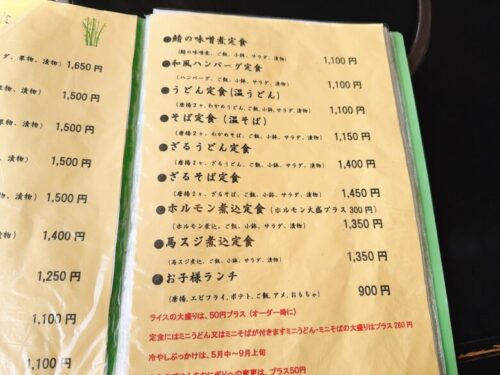 ダ、果物、漬物) 1,650 円
漬物) 1,500 円
漬物) 1,500 円
漬物) 1,500 円
漬物) 1,500 円
漬物) 1,400 円
1,250 円
1,100 円
1,100 円
●鯖の味噌煮定食
(鯖の味噌煮、ご飯、小鉢、サラダ、漬物) 1,100 円
●和風ハンバーグ定食
(ハンバーグ、ご飯、小鉢、サラダ、漬物) 1,100 円
●うどん定食(温うどん)
(唐揚2ヶ、わかめうどん、ご飯、小鉢、サラダ、漬物) 1,100 円
●そば定食(温そば)
(唐揚2ヶ、わかめそば、ご飯、小鉢、サラダ、漬物) 1,150 円
●ざるうどん定食
(唐揚2ヶ、ざるうどん、ご飯、小鉢、サラダ、漬物) 1,400 円
●ざるそば定食
(唐揚2ヶ、ざるそば、ご飯、小鉢、サラダ、漬物) 1,450 円
●ホルモン煮込定食(ホルモン大盛プラス 300 円)
(ホルモン煮込、ご飯、小鉢、サラダ、漬物) 1,350 円
●馬スジ煮込定食
(馬スジ煮込、ご飯、小鉢、サラダ、漬物) 1,350 円
●お子様ランチ
(唐揚、エビフライ、ポテト、ご飯、アメ、おもちゃ) 900 円
ライスの大盛りは、50円プラス(オーダー時に)
定食にはミニうどん又はミニそばが付きますミニうどん・ミニそばの大盛りはプラス 260 円
冷やしぶっかけは、5月中~9月上旬
への変更は、プラス50円